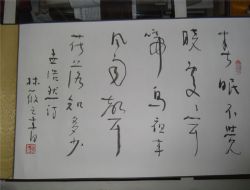 春眠不觉
晓处处闻
啼鸟夜来
风雨声
花落知多少
孟浩然诗
林筱之书